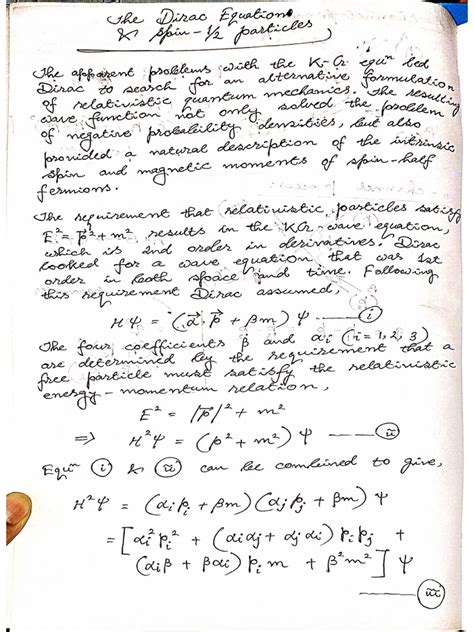 The Dirac Equation
& Spin-1/2 particles
The apparent problems with the K-G equⁿ led
Dirac to search for an alternative formulation
of relativistic quantum mechanics. The resulting
wave function not only solved the problem
of negative probability densities, but also
provided a natural description of the intrinsic
spin and magnetic moments of spin-half
fermions.
The requirement that relativistic particles satisfy
E² = p⃗² + m² results in the K.G. wave equation,
which is 2nd order in derivatives. Dirac
looked for a wave equation that was 1st
order in both space and time. Following
this requirement Dirac assumed,
Hψ = (α⃗.p⃗ + βm) ψ — (i)
The four coefficients β and αi (i = 1, 2, 3)
are determined by the requirement that a
free particle must satisfy the relativistic
energy-momentum relation,
E² = |p⃗|² + m²
⇒ H²ψ = (p² + m²) ψ — (ii)
Equⁿ (i) & (ii) can be combined to give,
H²ψ = (αi pi + βm) (αj pj + βm) ψ
= [αi² pi² + (αi αj + αj αi) pi pj +
(αi β + β αi) pi m + β² m²] ψ
— (iii)